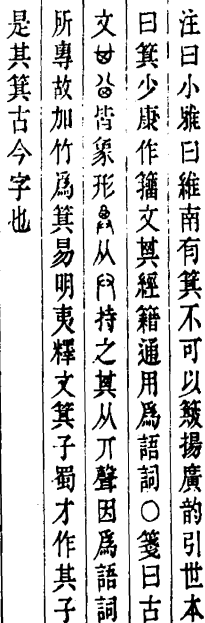 注曰小雅曰維南有箕不可以簸揚廣韵引世本
曰箕少康作籒文其經籍通用爲語詞○箋曰古
文皆象形从持之其从丌聲因爲語詞
所專故加竹爲箕易明夷釋文箕子蜀才作其子
是其箕古今字也